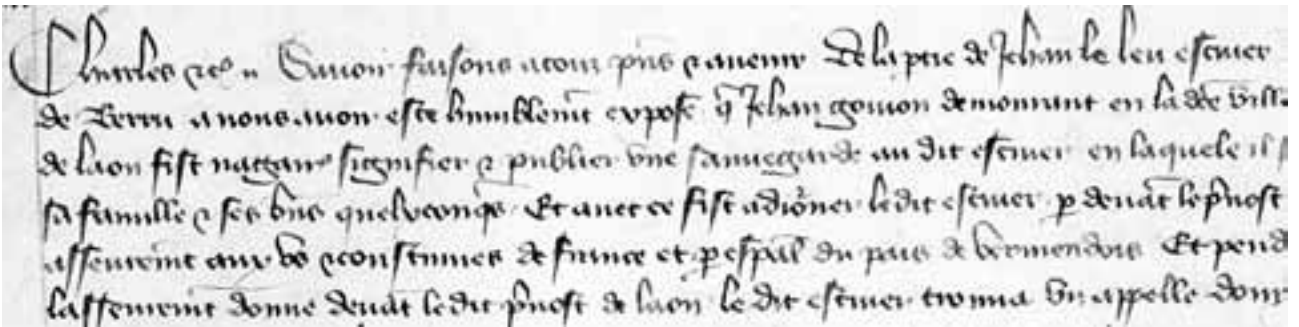 Charles etc. Savoir faisons a touz pns et avenir De la ptie de Jehan le leu escuier
de Berru a nous avoir este humblemt expose q Jehan gouion demourant en la dce ville
de laon fist nagaires signifier et publier une sauvegarde au dit escuier en laquele il
sa famille et ses bns quelxconqs Et avec ce fist adiorner ledit escuier p devat le pvost
asseuremt aux us et coustumes de france et p especial du pais de vermendois Et pend
lasseuremt donne devat ledit pvost de laon le dit escuier trouva un appelle